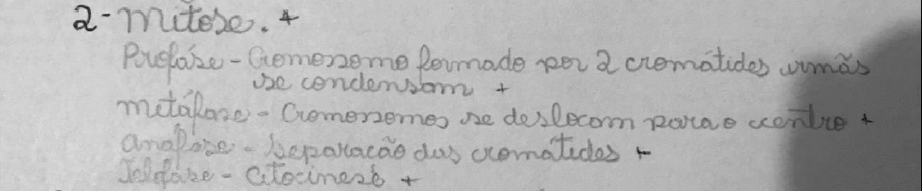 2- Mitose. +
Prófáse - Cromossomo formado por 2 cromátides irmãs
se condensam +
metáfase - Cromossomos se deslocam para o centro +
anáfase - Separação das cromatides +
Telófase - Citocinese +